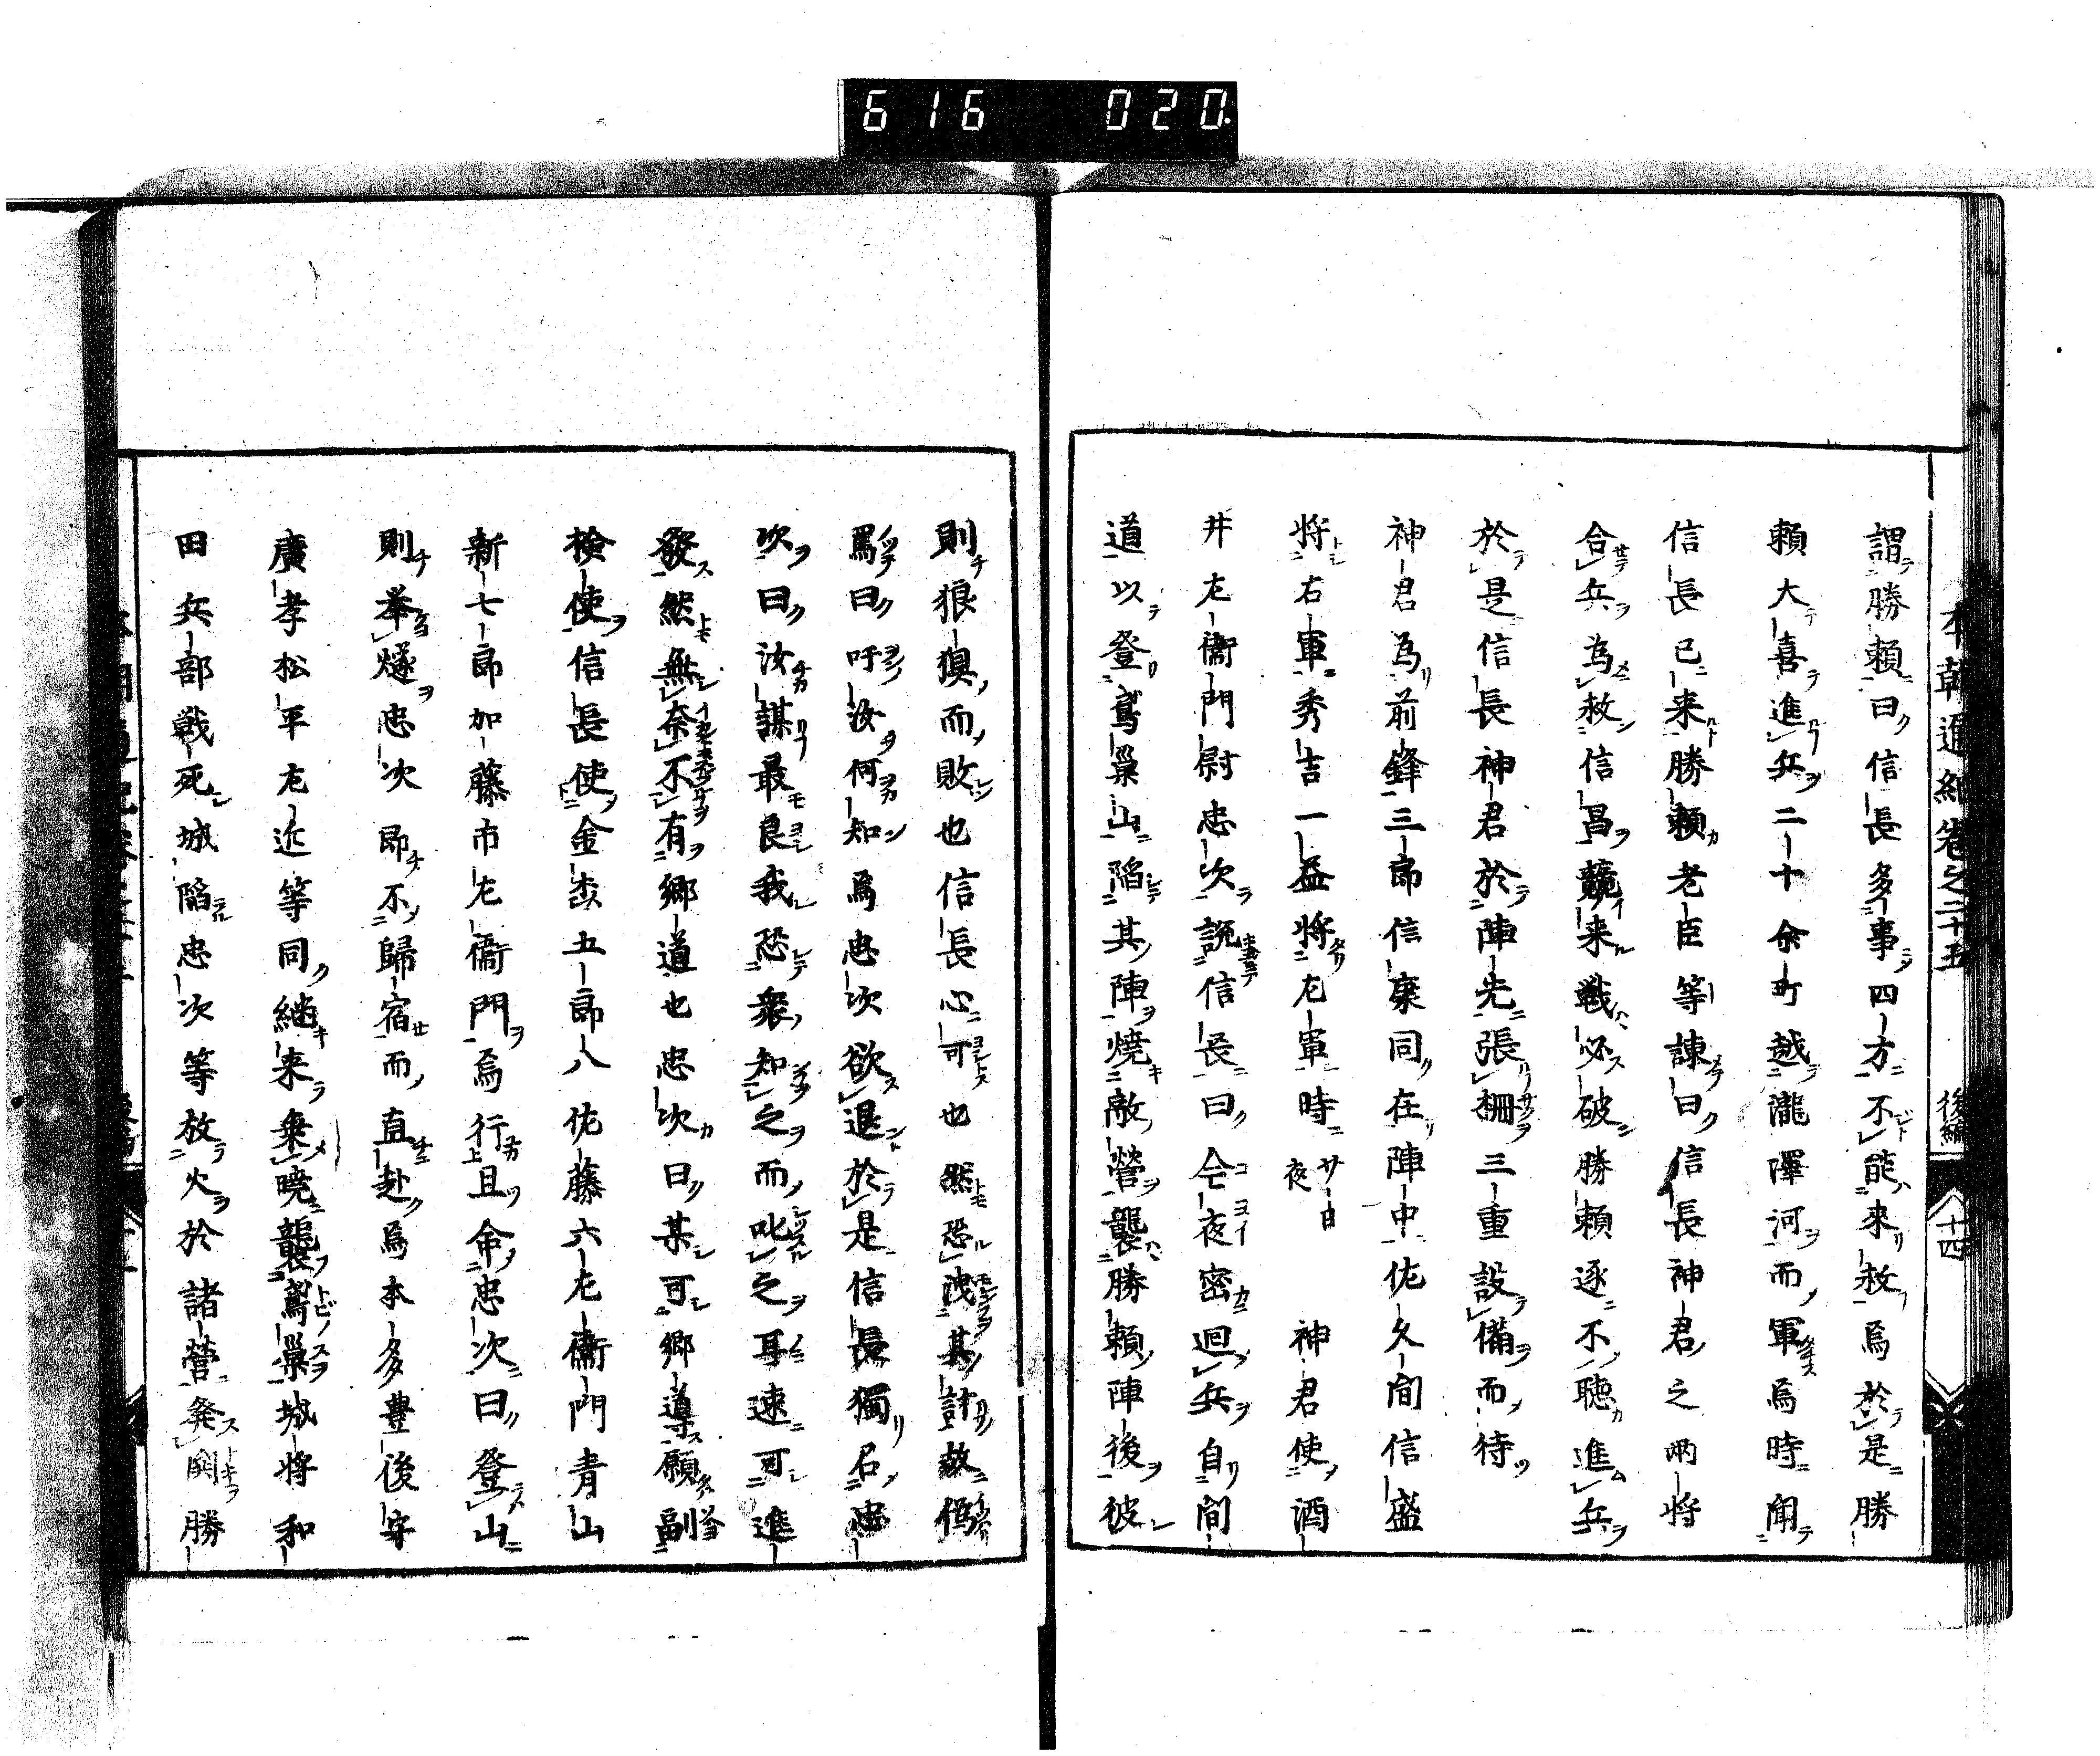 616 020
本朝通紀卷之二十五 後編 十四
謂勝頼曰信長多事四方不能來救焉於是勝
頼大喜進兵二十余町越瀧澤河而軍焉時聞
信長已来勝頼老臣等諫曰信長神君之兩将
合兵為救信昌競来戦必破勝頼逐不聴進兵
於是信長神君於陣先張柵三重設備而待
神君為前鋒三郎信康同在陣中佐久間信盛
将右軍秀吉一益将左軍時廿日夜 神君使酒
井左衞門尉忠次説信長曰今夜密迴兵自間
道以登鳶巣山陥其陣焼敵營襲勝頼陣後彼
則狼狽而敗也信長心可也然恐洩其計故偽
罵曰吁汝何知焉忠次欲退於是信長獨召忠
次曰汝謀最良我恐衆知之而叱之耳速可進
發然無奈不有郷道也忠次曰某可郷導願副
檢使信長使金森五郎八佐藤六左衞門青山
新七郎加藤市左衞門焉行且命忠次曰登山
則举燧忠次即不歸宿而直赴焉本多豊後守
廣孝松平左近等同継来乗暁襲鳶巣城将和
田兵部戦死城陥忠次等放火於諸營発鬨勝